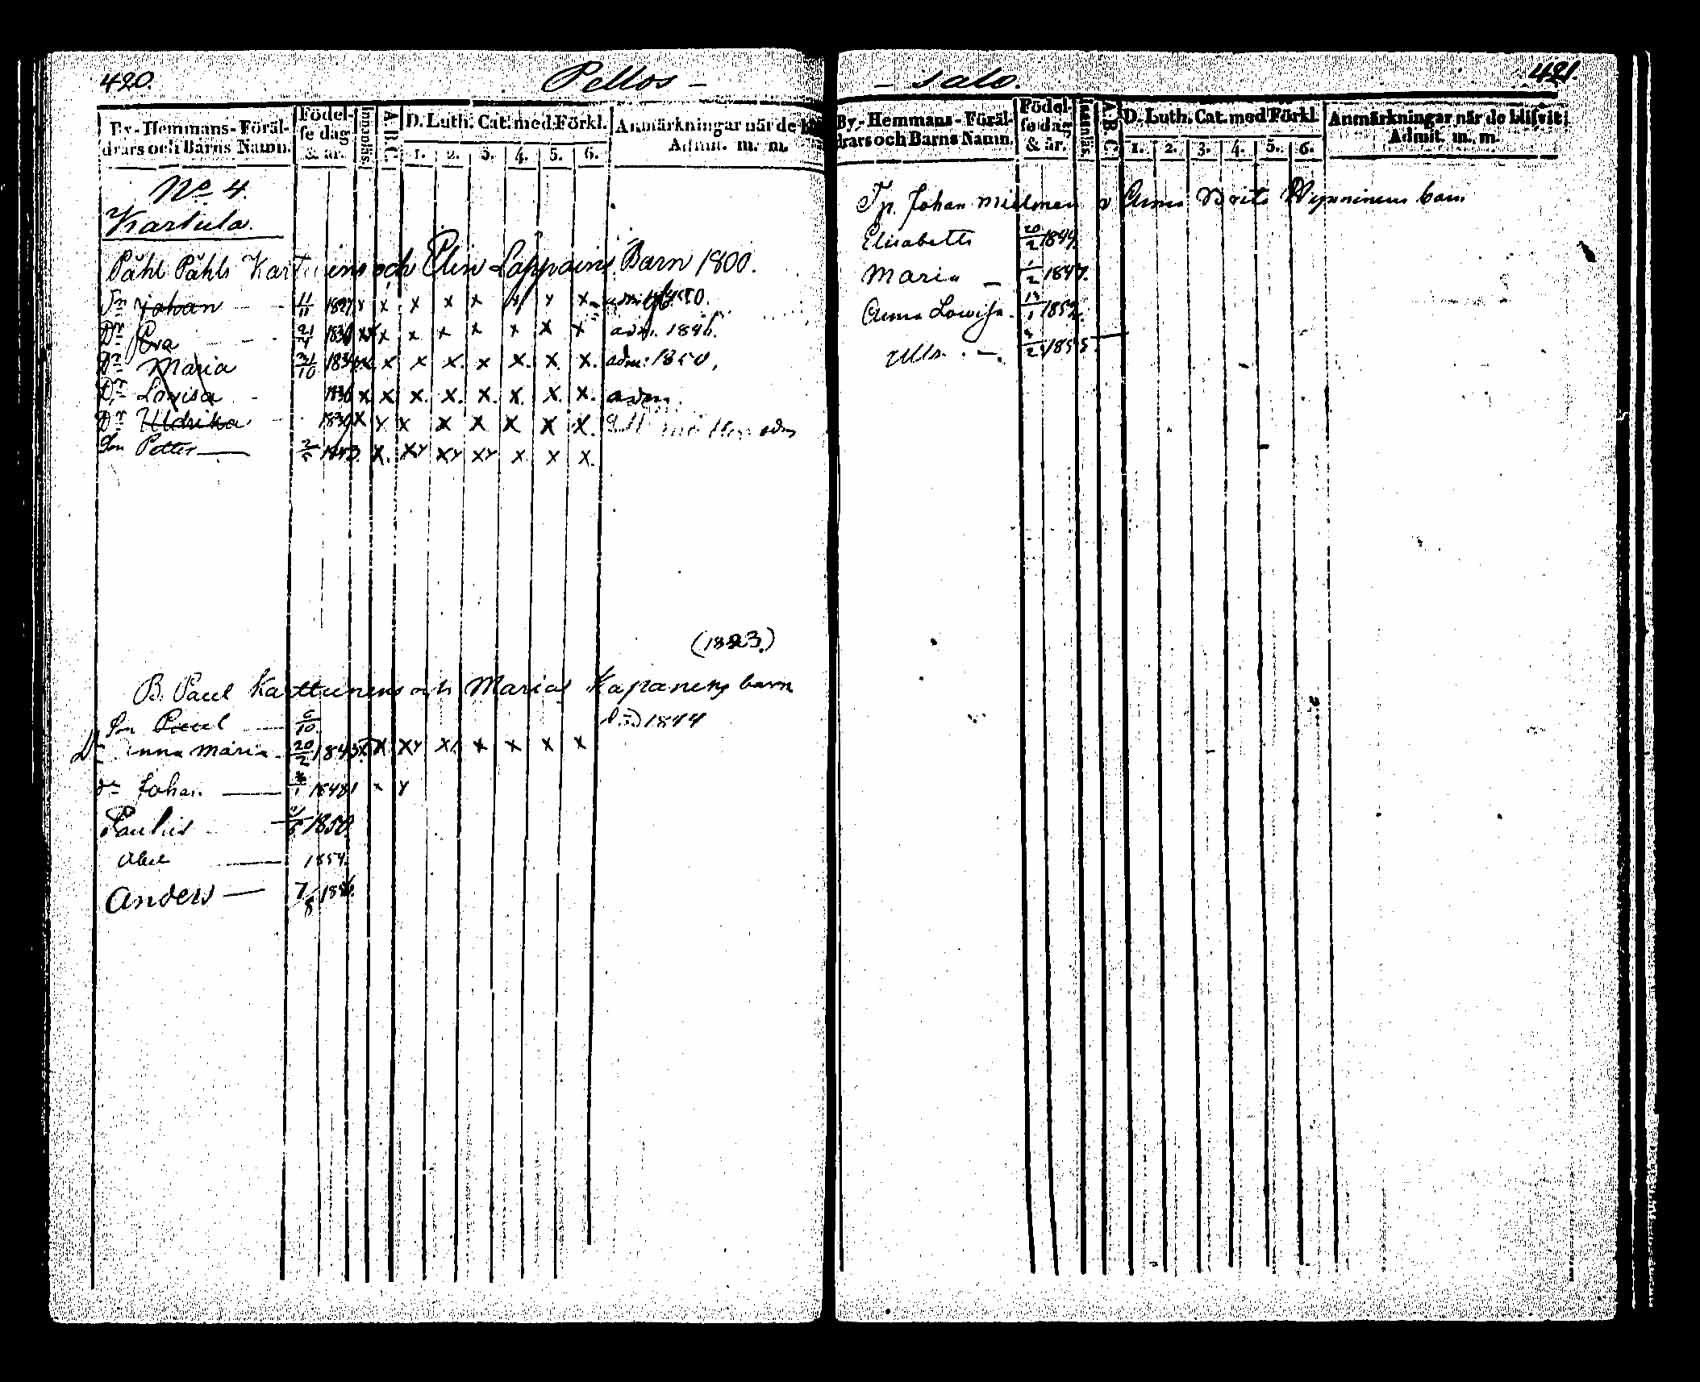 420.
Pellos -
By-Hemmans-Föräl-
drars och Barns Namn.
Födel-
se dag
& år.
Innanläs.
A.B.C.
D. Luth. Cat. med Förkl.
1. 2. 3. 4. 5. 6.
Anmärkningar når de
Admit. m. m.
No 4.
Kartula.
Påhl Påhls Kartuens och Elin Lappains Barn 1800.
Sn Johan 11/11 x x x x x x x x
Dr Eva x x x x x x x adm. 1846.
Dr Maria x x x x x x x adm. 1850.
Dr Lovisa 1836 x x x x x x x x adm.
Dr Uldrika x x x x x x x x adm
Son Petter x. xy xy xy x x x.
(1823.)
B. Paul Karttunens och Marias Kapanens barn
Sn Paul 6/10 1844
Dr Anna Maria 20/2 1845 x x xy x x x x x
Johan 1848 x y
Paulus 1850
Abel 1854.
Anders 7/8
- salo.
421.
By-Hemmans-Föräl-
drars och Barns Namn.
Födel-
se dag
& år.
Innanläs.
A.B.C.
D. Luth. Cat. med Förkl.
1. 2. 3. 4. 5. 6.
Anmärkningar når de blifvit
Admit. m. m.
Johan Anna barn
Elisabeth 20/2 1844
Maria 1/2 1847.
Anna Lowisa 1852
Ulla 1855